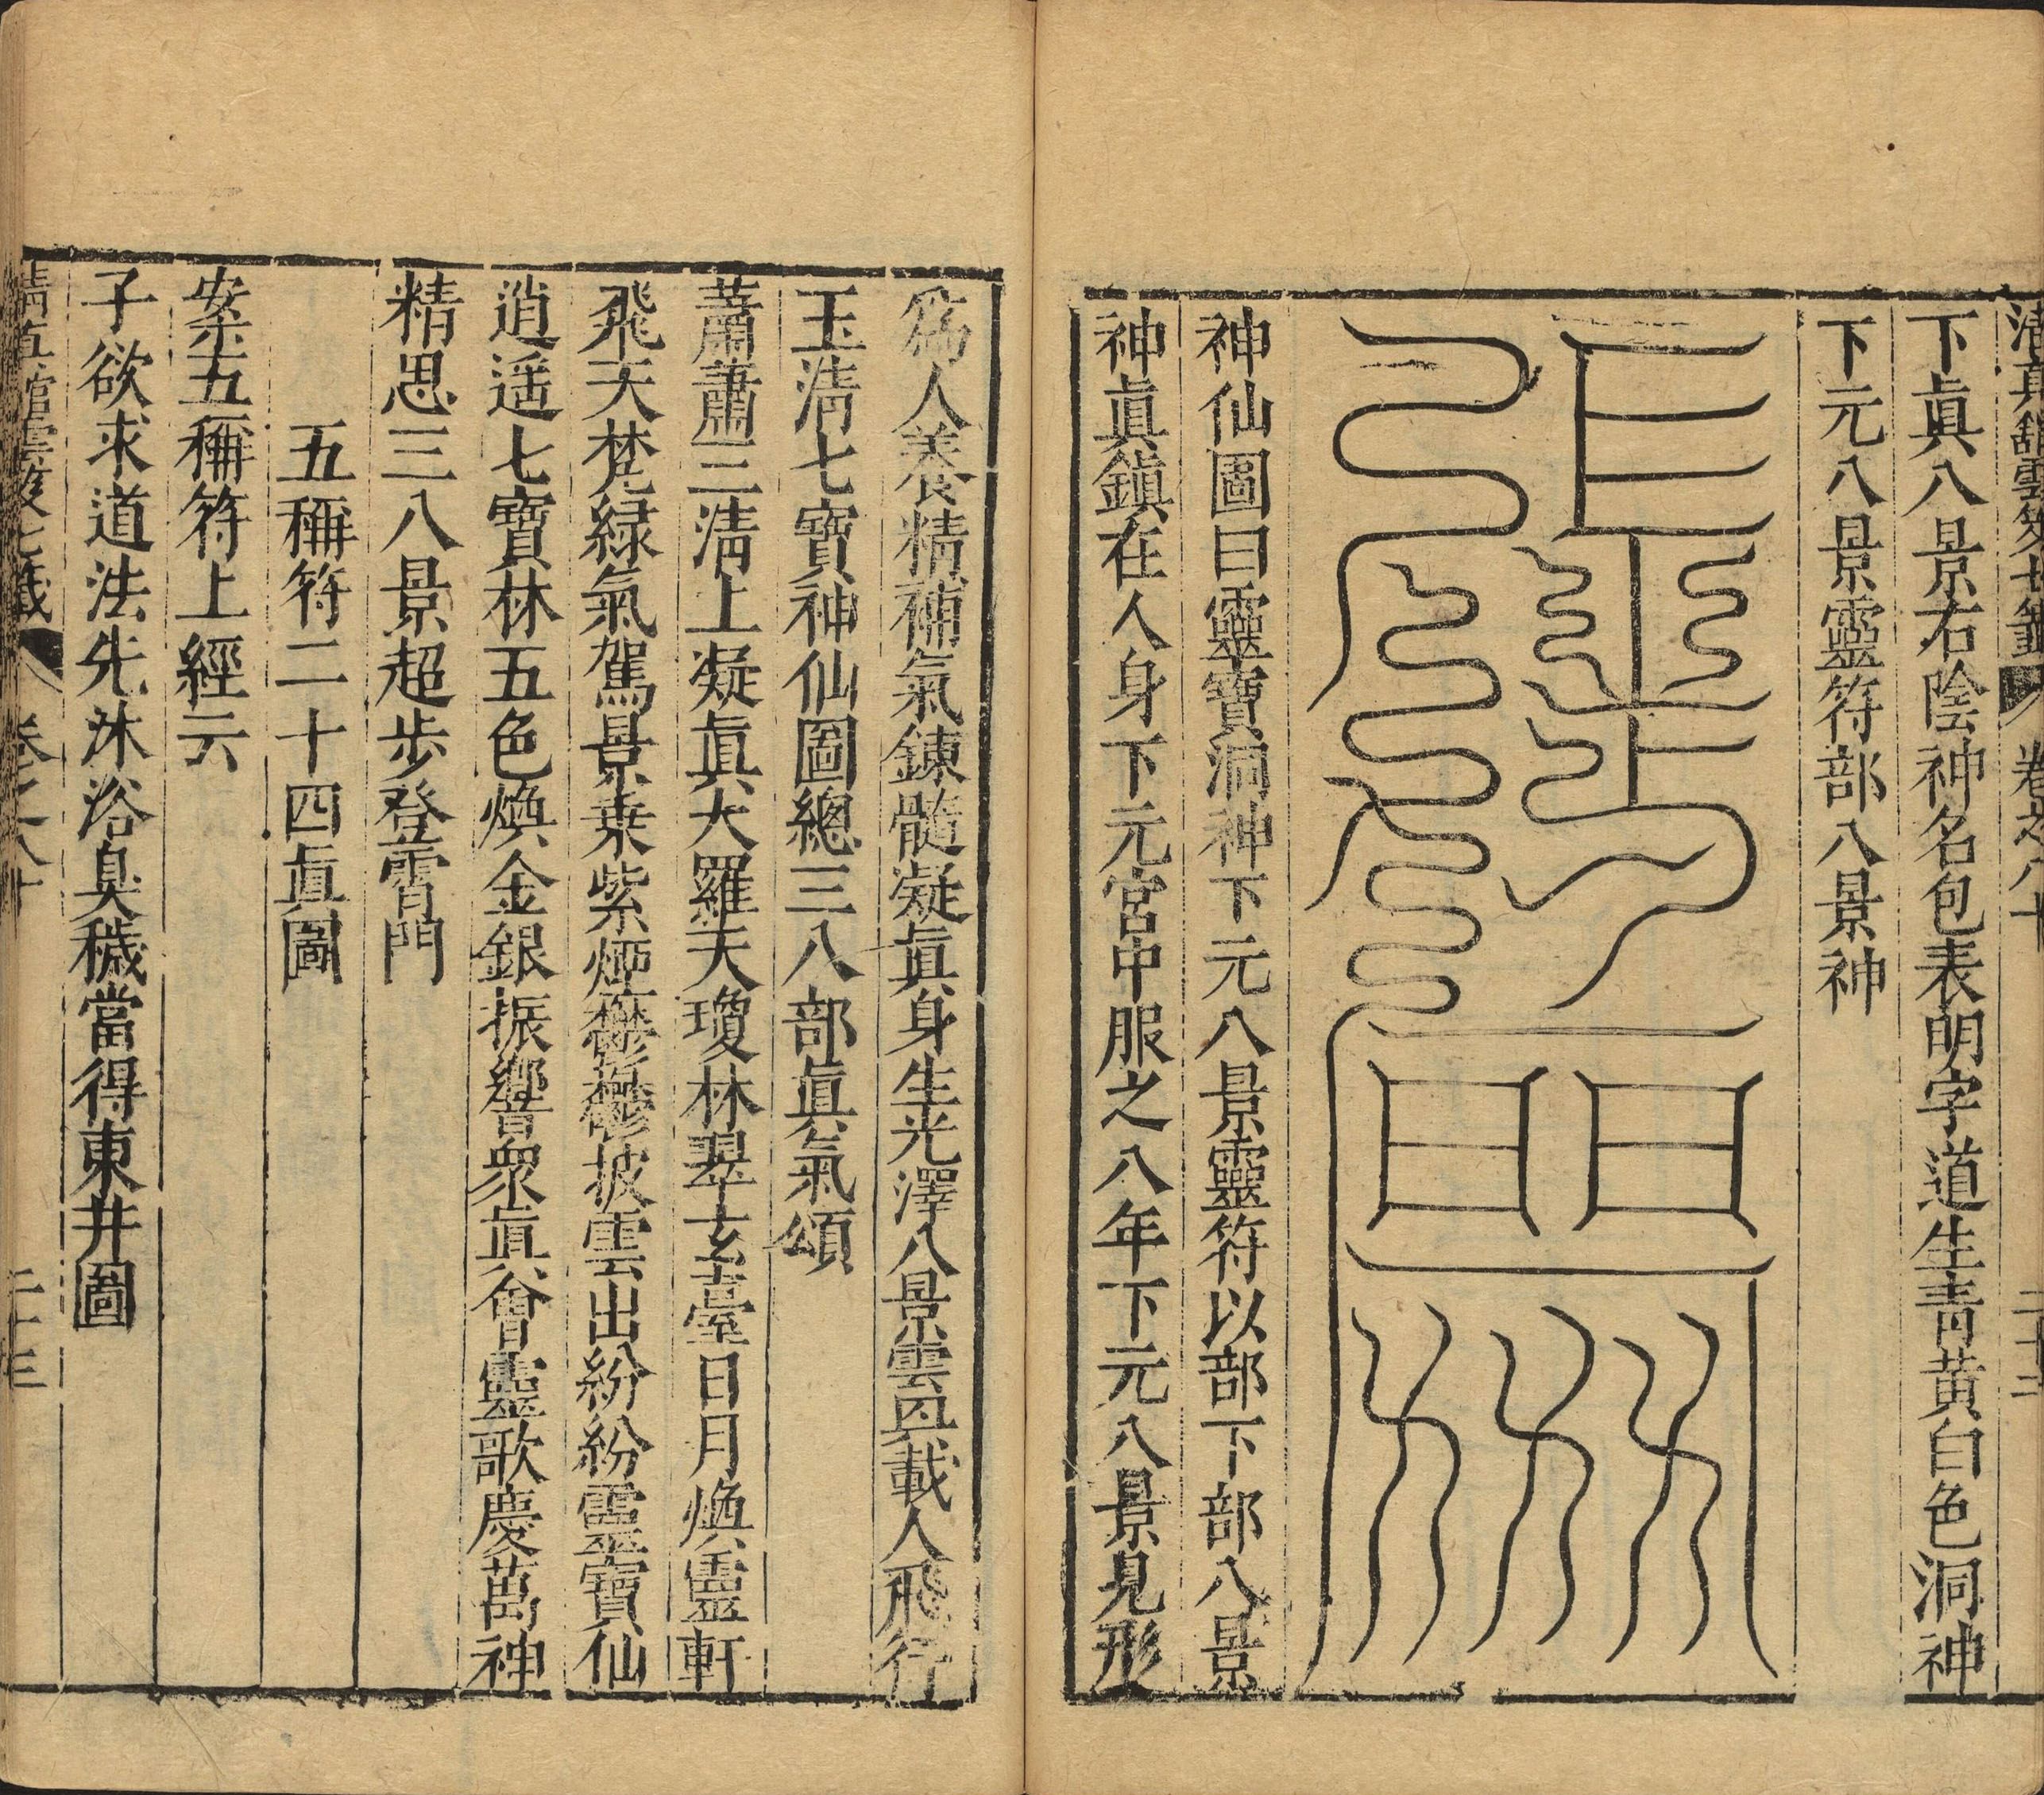 清真館雲笈七籤 卷之八十 二十三
下眞八景右陰神名包表明字道生靑黃白色洞神
下元八景靈符部八景神
神仙圖曰靈寶洞神下元八景靈符以部下部八景
神眞鎭在人身下元宮中服之八年下元八景見形
爲人養精補氣鍊髓凝眞身生光澤八景雲輿載人飛行
玉淸七寶神仙圖總三八部眞氣頌
蕭蕭三淸上凝眞大羅天瓊林翠玄臺日月煥靈軒
飛天梵綠氣駕景乗紫煙欝欝披雲出紛紛靈寶仙
逍遥七寶林五色煥金銀振響衆眞會靈歌慶萬神
精思三八景超步登霄門
五稱符二十四眞圖
案五稱符上經云
子欲求道法先沐浴臭穢當得東井圖
清眞館雲笈七籤 卷之八十 二十三